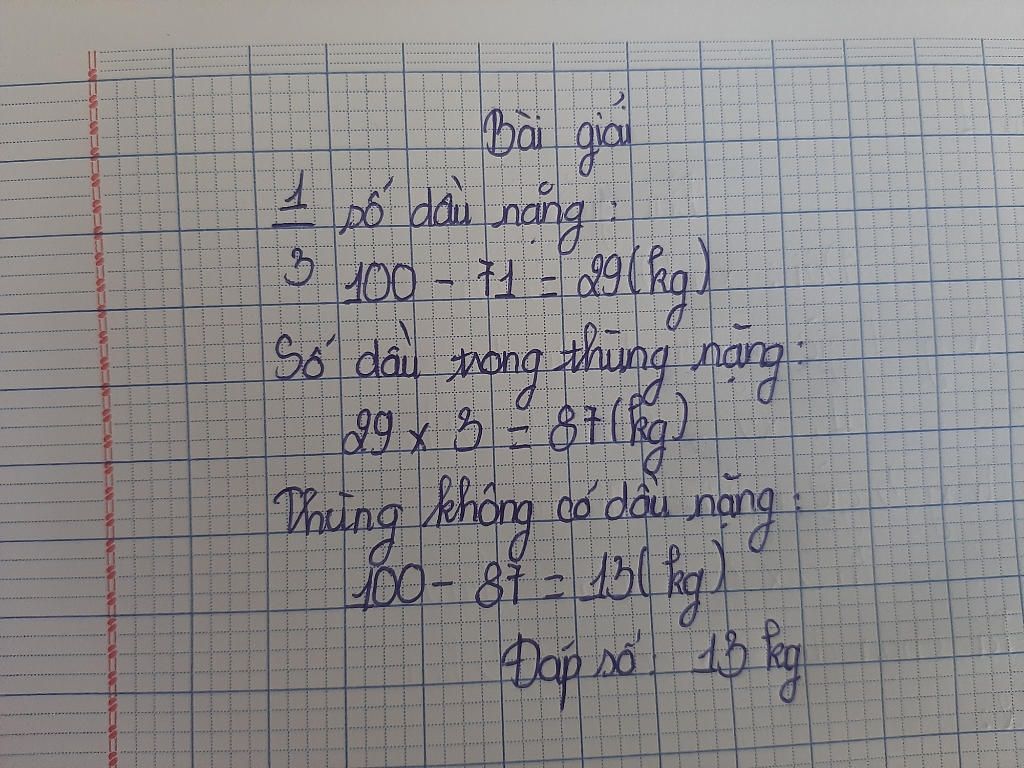 Bài giải
1/3 số dầu nặng:
100 - 71 = 29 (kg)
Số dầu trong thùng nặng:
29 x 3 = 87 (kg)
Thùng không có dầu nặng:
100 - 87 = 13 (kg)
Đáp số: 13 kg